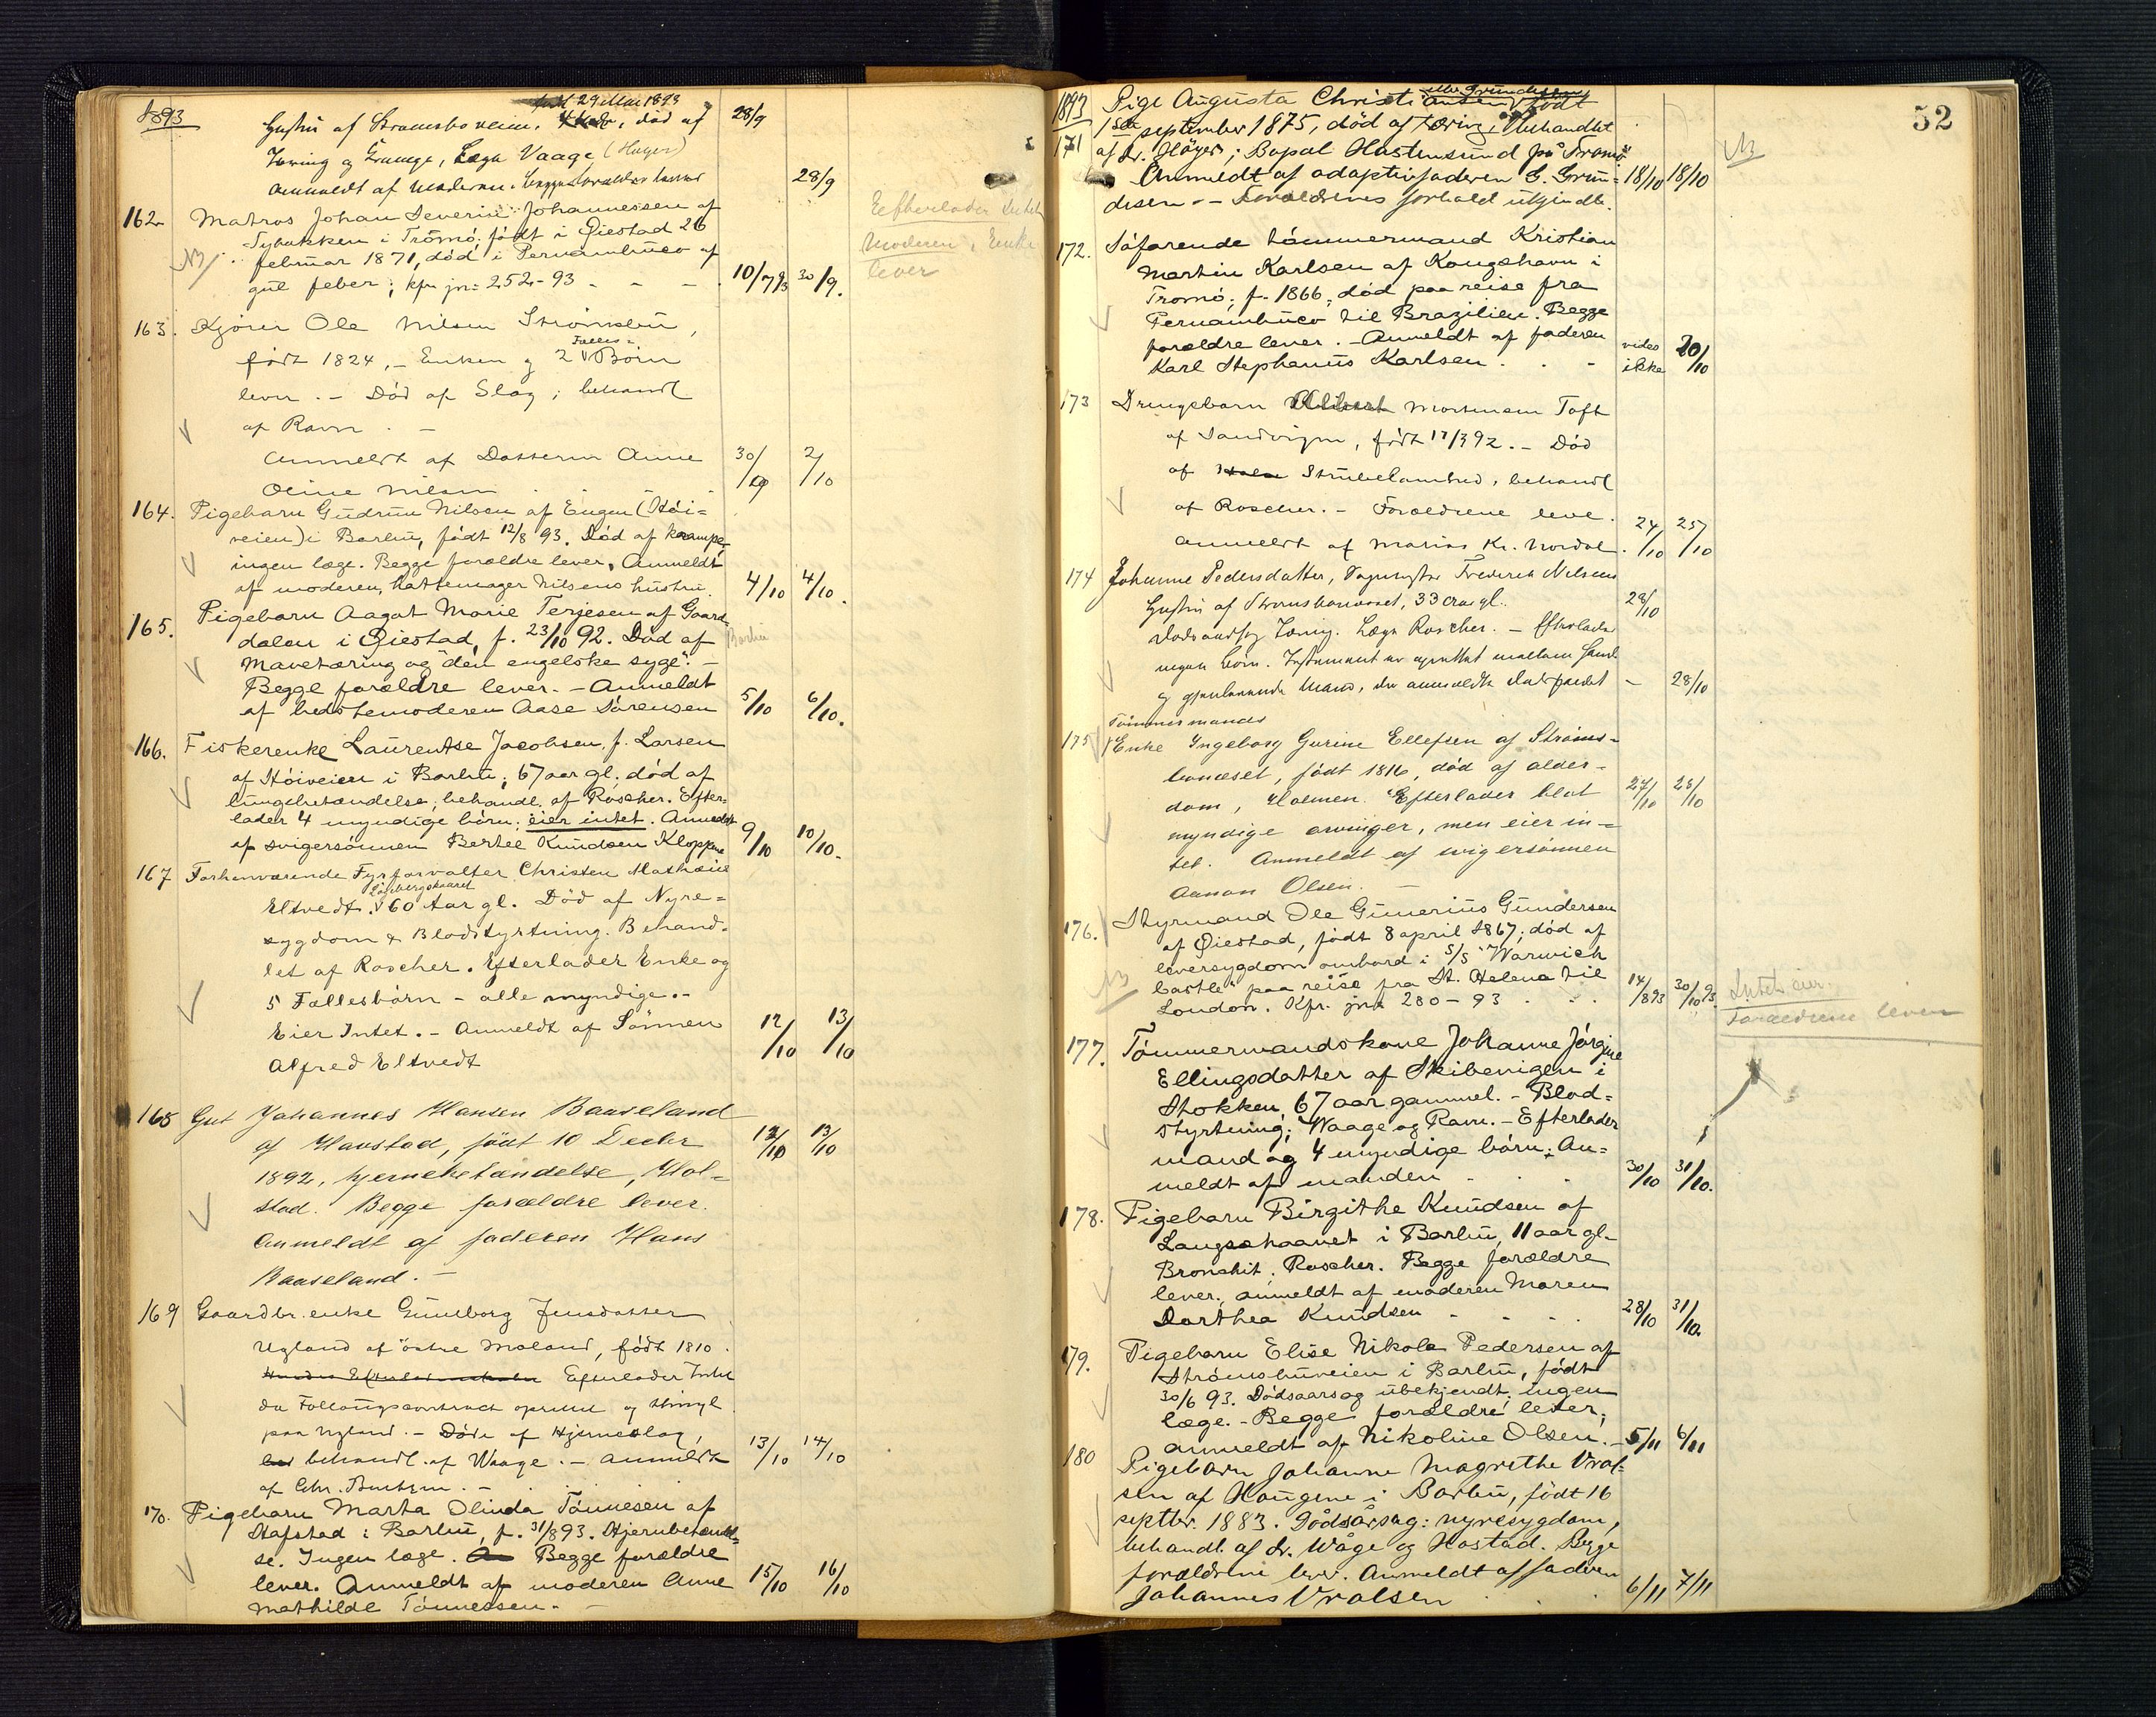 1893
født 29 Mai 1893
Hustru af Strømsboveien, død af
Tæring og Krampe, Læge Vaage (Høyer)
Anmeldt af Moderen. Begge Forældre lever
28/9 28/9
162. Matros Johan Severin Johannessen af
Sybakken i Tromø, født i Øiestad 26
NB februar 1871, død i Pernambuco af
gul feber; kfr. jn: 252-93 - - - 10/7 93 30/9.
Efterlader Intet
Moderen, Enke
lever
163. Kjører Ole Nilsen Strømsbu,
født 1824, - Enken og 2 Fælles- Børn
lever. - Død af Slag; behandl
af Ravn. -
Anmeldt af Datteren Anne
Oline Nilsen 30/9 2/10
164. Pigebarn Gudrun Nilsen af Engen (Høi=
veien) i Barbu, født 12/8 93. Død af krampe,
ingen læge. Begge forældre lever. Anmeldt
af moderen, hattemager Nilsens hustru. 4/10 4/10.
165. Pigebarn Aagot Marie Terjesen af Gaard-
dalen i Øiestad, f. 23/10 92. Død af Barbu
Mavetæring og "den engelske syge". -
Begge forældre lever. - Anmeldt
af bedstemoderen Aase Sørensen 5/10 6/10.
166. Fiskerenke Laurentse Jacobsen, f. Larsen
af Høiveien i Barbu, 67 aar gl. død af
lungebetændelse; behandl. af Roscher. Efter=
lader 4 myndige børn; eier intet. Anmeldt
af svigersønnen Bertel Knudsen Kloppene 9/10 10/10.
167 Forhenværende Fyrforvalter Christen Mathæus
Eltvedt. Langbergskaaret 60 Aar gl. Død af Nyre=
sygdom & Blodstyrtning. Behand=
let af Roscher. Efterlader Enke og
5 Fællesbørn - alle myndige. -
Eier Intet. - Anmeldt af Sønnen 12/10 13/10
Alfred Eltvedt
168 Gut Johannes Hansen Baaseland
af Haustad, født 10 Decbr 12/10 13/10
1892, hjernebetændelse, Hol=
stad. Begge forældre lever.
Anmeldt af faderen Hans
Baaseland. -
169 Gaardbr. enke Gunborg Jensdatter
Ugland af østre Moland, født 1810.
Efterlader Intet
da Føllaugscontract oprettet og thinglyst
paa Ugland. - Døde af Hjerneslag,
behandl. af Waage. - Anmeldt 13/10 14/10
af Chr. -
170. Pigebarn Marta Olinda Tønnesen af
Stafstad i Barbu, f. 31/8 93. Hjernebetændel=
se. Ingen læge. Begge forældre
lever. Anmeldt af moderen Anne 15/10 16/10
Mathilde Tønnessen. -
52
1893 Pige Augusta Christiansen eller Grundesen født
171 1ste september 1875, død af tæring, ubehandlet
af Dr. Høyer; Bopæl Hastensund på Tromø
Anmeldt af adoptivfaderen G. Grun= 18/10 18/10 NB
desen. - Forældrenes forhold ukjendt.
172. Søfarende tømmermand Kristian
Martin Karlsen af Kongshavn i
Tromø, f. 1866, død paa reise fra
Pernambuco til Brazilien. Begge
forældre lever. - Anmeldt af faderen vides
Karl Stephanus Karlsen. . - ikke 20/10
173 Drengebarn Albert Mortensen Toft
af Sandvigen, født 17/3 92. - Død
af Strubelambed, behandl
af Roscher. - Forældrene leve.
Anmeldt af Marius Kr. Nordal. 24/10 25/10
174 Johanne Pedersdatter, Frederik Nelsens
Hustru af Strømsbonæset, 33 Aar gl. 28/10
Dødsaarsag Tæring. Læge Roscher. - Efterlader
ingen Børn. Testament er oprettet mellem hende
og gjenlevende Mand, der anmeldte Dødsfaldet - 28/10
Tømmermands
175 Enke Ingeborg Gurine Ellefsen af Strøms=
bonæset, født 1816, død af alder=
dom, Holmen. Efterlader blot 27/10 28/10
myndige arvinger, men eier in=
tet. Anmeldt af svigersønnen
Aanon Olsen. -
176. Styrmand Ole Gunerius Gundersen
af Øiestad, født 8 april 1867; død af
leversygdom ombord i S/S "Warwick
NB Castle" paa reise fra St. Helena til
London. Kfr. jn: 280-93 . . . 14/8 93 30/10 93.
Intet eier.
Forældrene lever
177. Tømmermandskone Johanne Jørgine
Ellingsdatter af Skibevigen i
Stokken, 67 aar gammel. - Blod=
styrtning; Waage og Ravn. - Efterlader
mand og 4 myndige børn; An=
meldt af manden . . . 30/10 31/10.
178. Pigebarn Birgithe Knudsen af
Langsehaaret i Barbu, 11 aar gl.
Bronchit; Roscher. Begge forældre
lever; anmeldt af moderen Maren
Dorthea Knudsen - . . . 28/10 31/10.
179. Pigebarn Elise Nikola Pedersen af
Strømsbuveien i Barbu, født
30/6 93. Dødsaarsag ubekjendt; ingen
læge. - Begge forældre lever;
anmeldt af Nikoline Olsen. - 5/11 6/11
180 Pigebarn Johanne Magrethe Vral=
sen af Haugene i Barbu, født 16
septbr. 1883. Dødsårsag: nyresygdom,
behandl. af Dr. Wåge og Hastad. Begge
forældrene lever. Anmeldt af faderen
Johannes Vralsen . . . 6/11 7/11